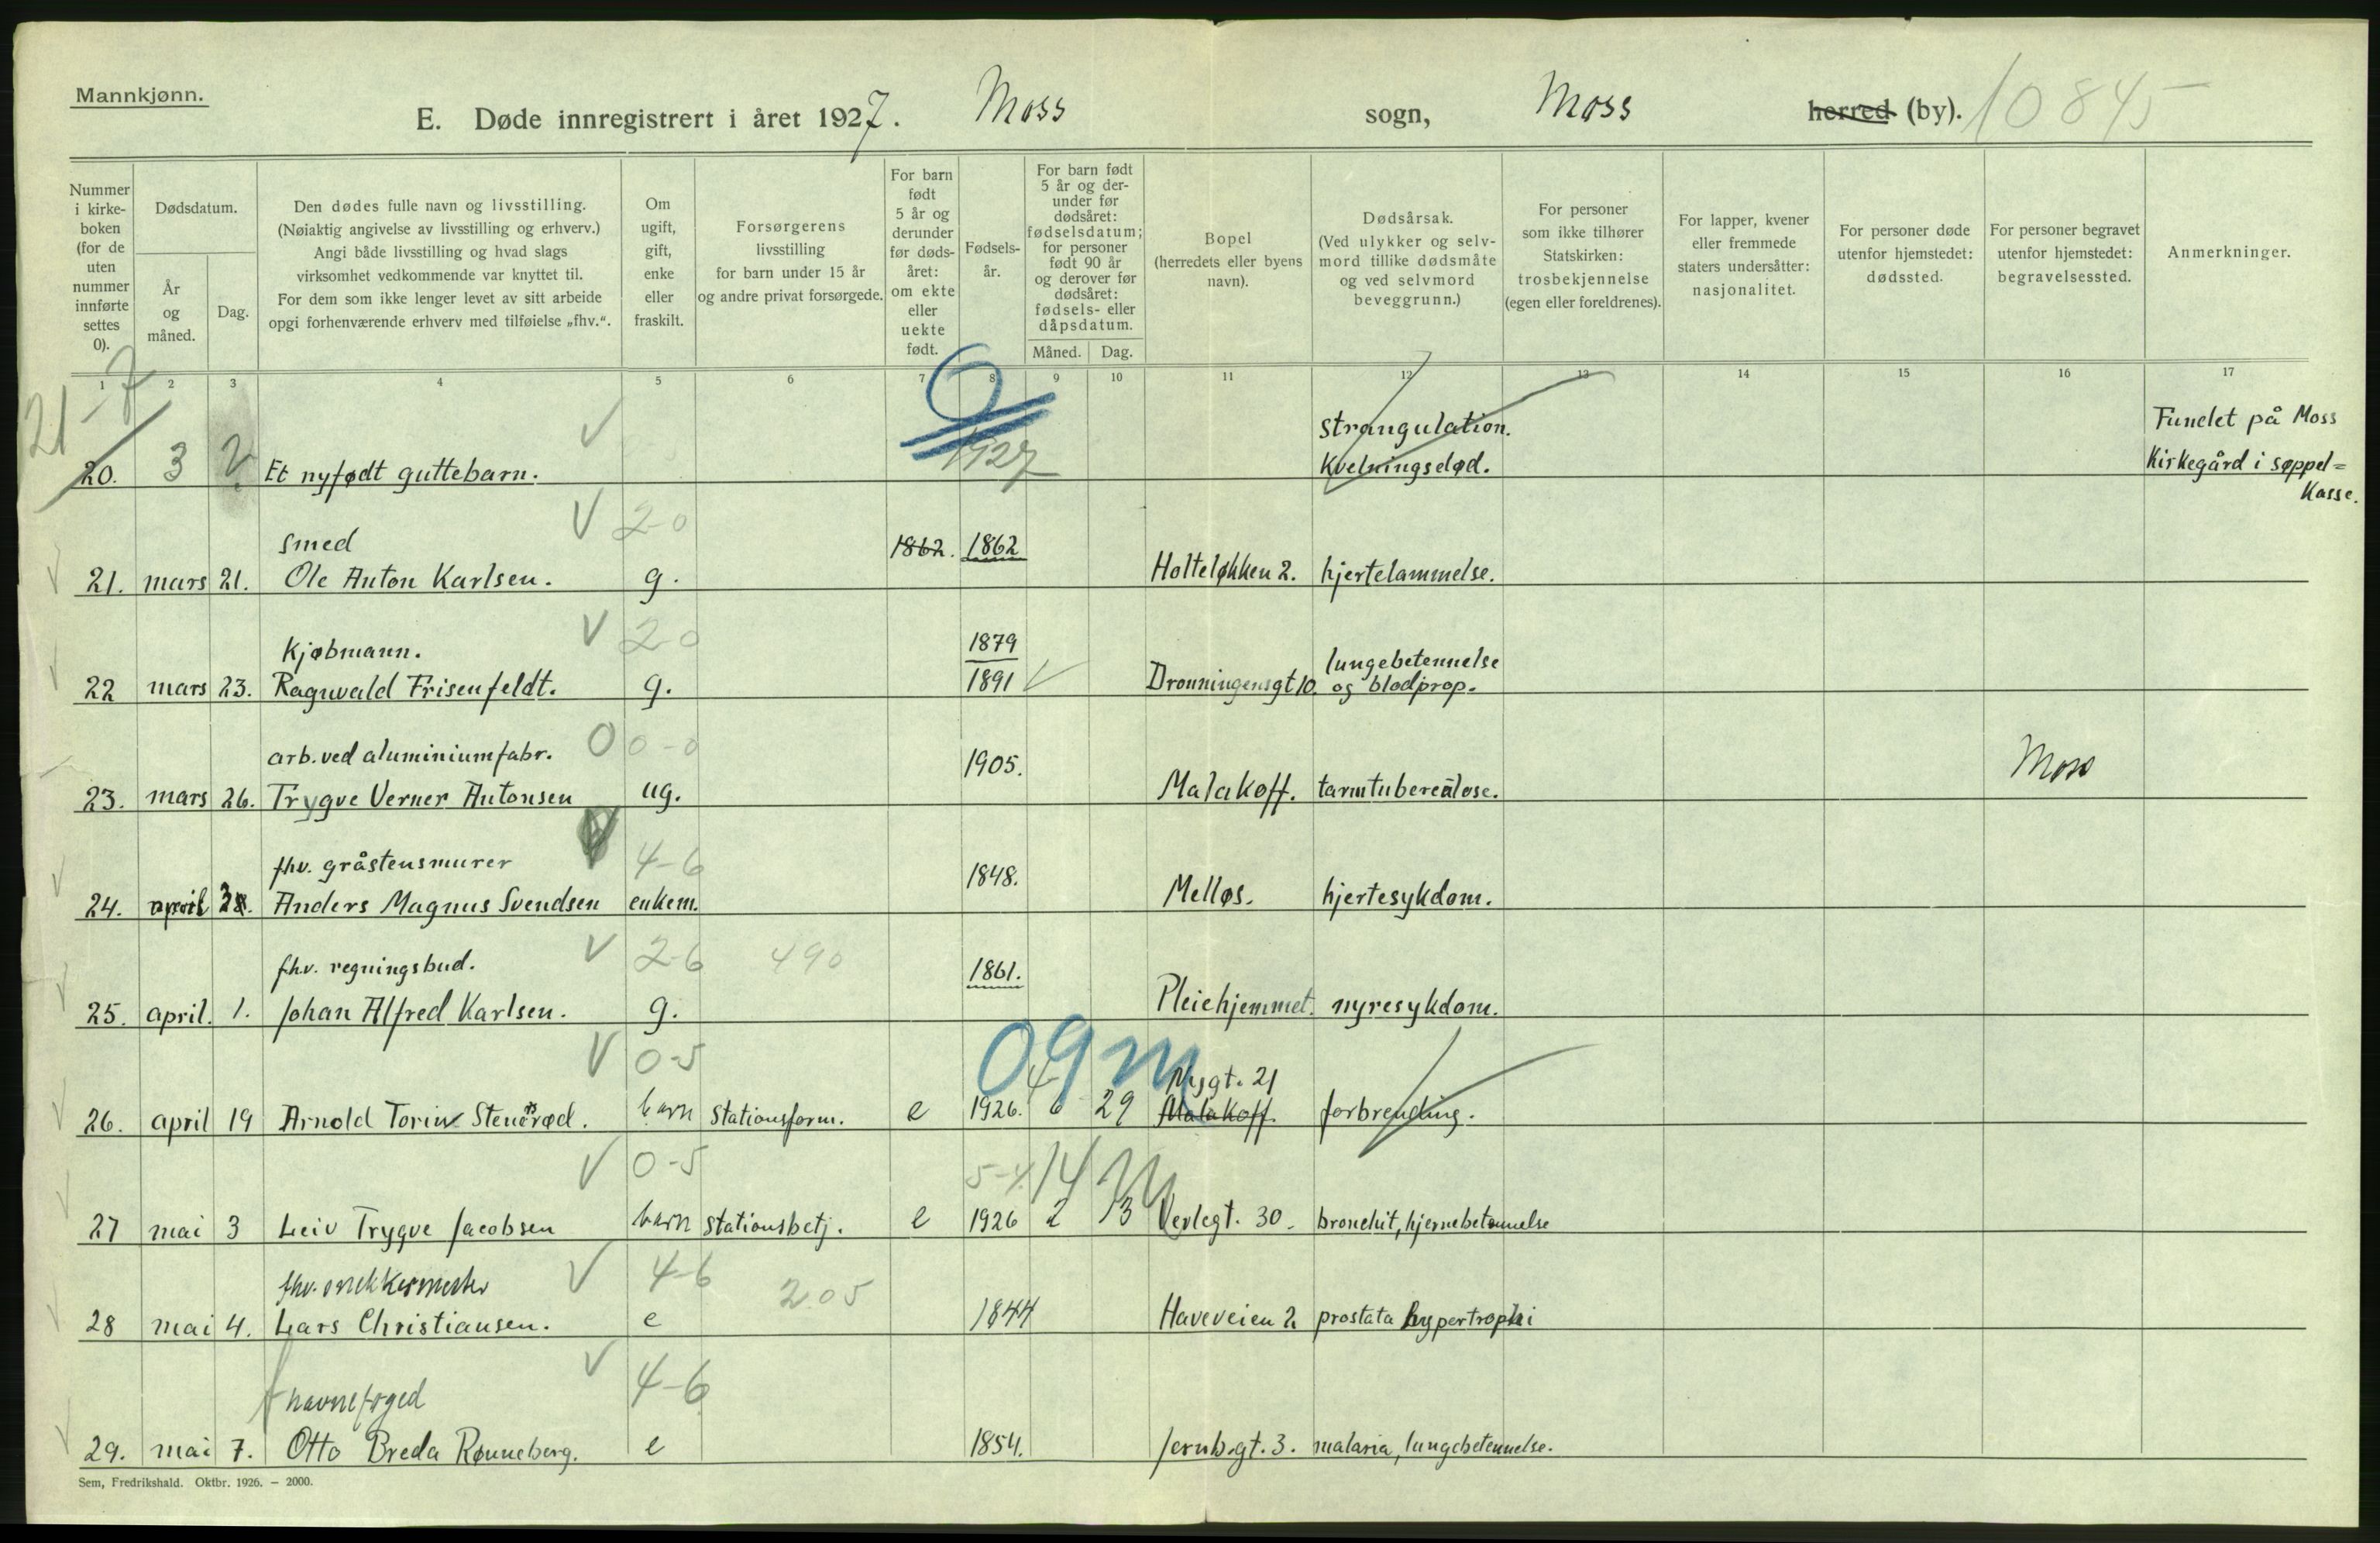 Mannkjønn.
E. Døde innregistrert i året 1927. Moss sogn, Moss herred (by). 10845
Nummer i kirke- boken (for de uten nummer innførte settes 0).
Dødsdatum.
År og måned.
Dag.
Den dødes fulle navn og livsstilling.
(Nøiaktig angivelse av livsstilling og erhverv.)
Angi både livsstilling og hvad slags
virksomhet vedkommende var knyttet til.
For dem som ikke lenger levet av sitt arbeide
opgi forhenværende erhverv med tilføielse „fhv.“.
Om ugift, gift, enke eller fraskilt.
Forsørgerens
livsstilling
for barn under 15 år
og andre privat forsørgede.
For barn født 5 år og derunder før døds- året: om ekte eller uekte født.
Fødsels- år.
For barn født 5 år og der- under før dødsåret: fødselsdatum; for personer født 90 år og derover før dødsåret: fødsels- eller dåpsdatum.
Måned. Dag.
Bopel
(herredets eller byens
navn).
Dødsårsak.
(Ved ulykker og selv-
mord tillike dødsmåte
og ved selvmord
beveggrunn.)
For personer
som ikke tilhører
Statskirken:
trosbekjennelse
(egen eller foreldrenes).
For lapper, kvener
eller fremmede
staters undersåtter:
nasjonalitet.
For personer døde
utenfor hjemstedet:
dødssted.
For personer begravet
utenfor hjemstedet:
begravelsessted.
Anmerkninger.
1 2 3 4 5 6 7 8 9 10 11 12 13 14 15 16 17
21-7
0
strangulation. Fundet på Moss
20. 3 Et nyfødt guttebarn. 1927 Kvelningsdød. Kirkegård i søppel=
Kasse.
V 2-0
smed 1862. 1862
21. mars 21. Ole Anton Karlsen. g. Holteløkken 2. hjertelammelse.
V 2-0
Kjøbmann. 1879 lungebetennelse
22 mars 23. Ragnvald Frisenfeldt. g. 1891 Dronningensgt 10. og blodprop.
0 0-0
arb. ved aluminiumfabr. 1905. Moss
23. mars 26. Trygve Verner Antonsen ug. Malakoff. tarmtuberculose.
4-6
fhv. gråstensmurer 1848.
24. april Anders Magnus Svendsen enkem. Melløs. hjertesykdom.
V 2-6 490
fhv. regningsbud. 1861.
25. april. 1. Johan Alfred Karlsen. g. Pleiehjemmet. nyresykdom.
V 0-5 09m
Nygt. 21
26. april 19 Arnold Torin Stenerød. barn Stationsform. e 1926. 6 29 Malakoff. forbrending.
V 0-5 5-4 14
27 mai 3 Leiv Trygve Jacobsen barn Stationsbetj. e 1926 2 13 Verlegt. 30. bronchit, hjernebetennelse
V 4-6 205
fhv. snekkermester
28 mai 4. Lars Christiansen. e 1844 Haveveien 2 prostata hypertrophi
V 4-6
havnefoged
29. mai 7. Otto Breda Rønneberg. e 1854. Jernb.gt. 3. malaria, lungebetennelse.
Sem, Fredrikshald. Oktbr. 1926. – 2000.